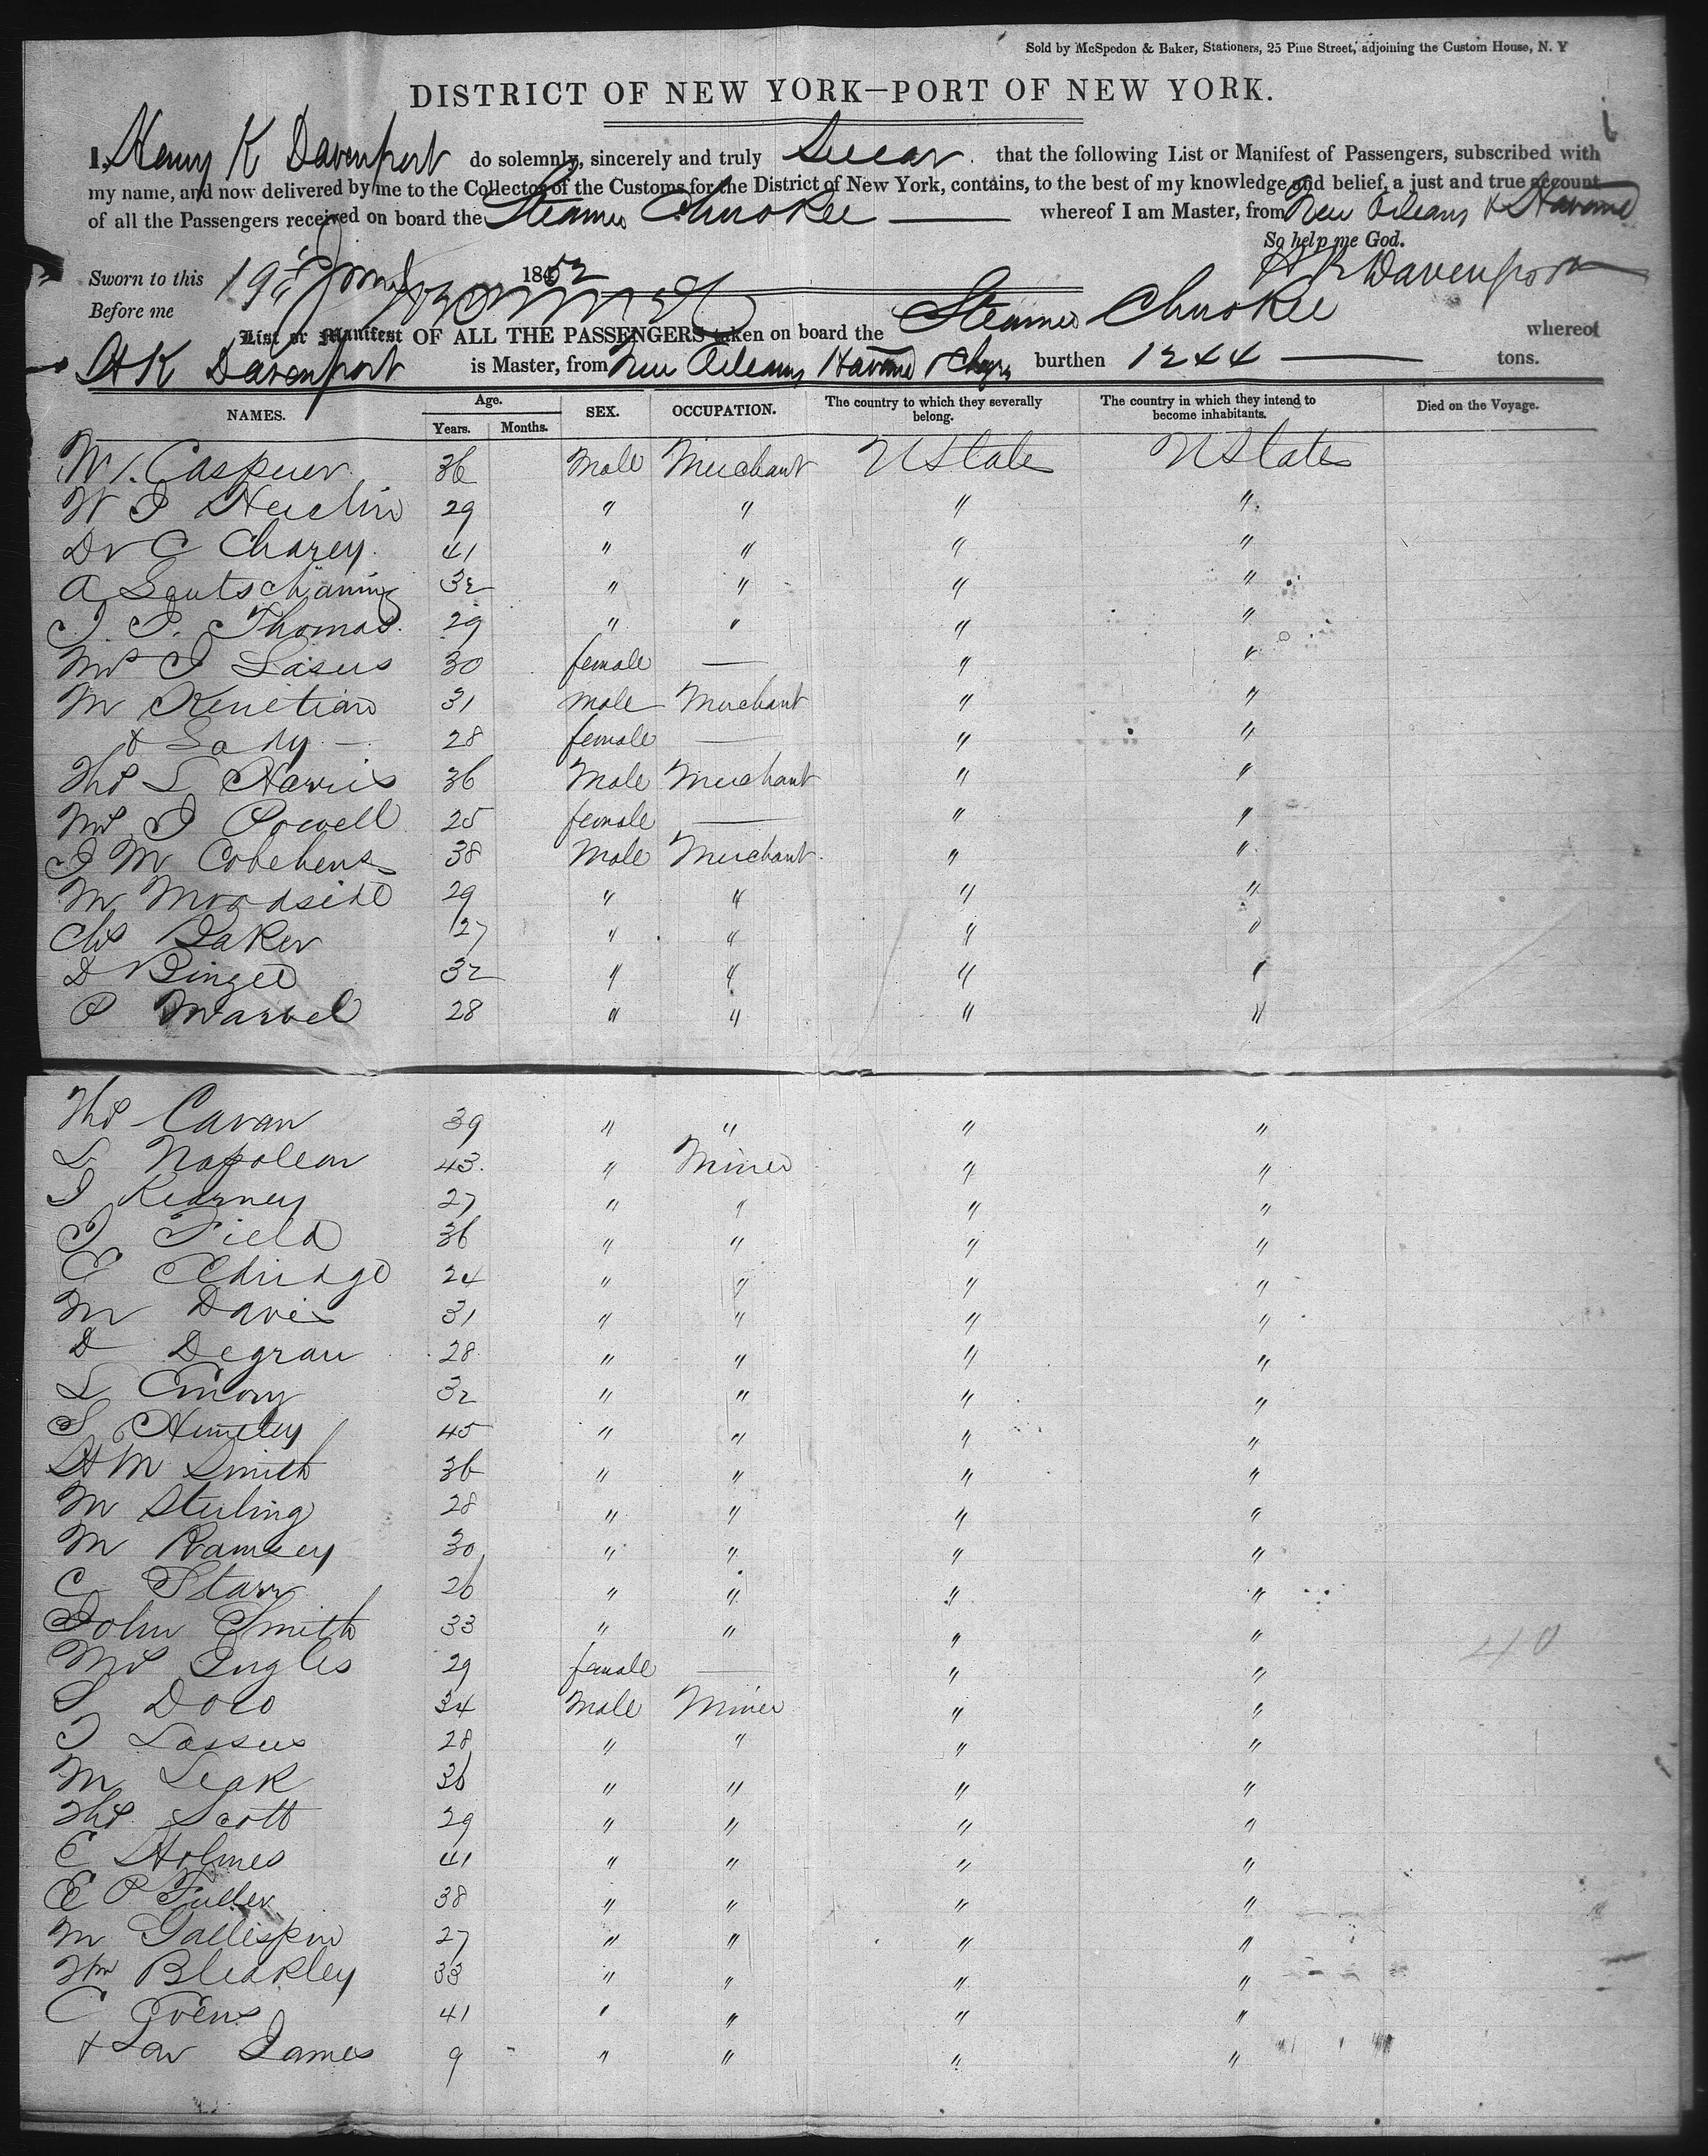 Sold by McSpedon & Baker, Stationers, 25 Pine Street, adjoining the Custom House, N. Y
DISTRICT OF NEW YORK—PORT OF NEW YORK.
I, Henry K Davenport do solemnly, sincerely and truly Swear that the following List or Manifest of Passengers, subscribed with
my name, and now delivered by me to the Collector of the Customs for the District of New York, contains, to the best of my knowledge and belief, a just and true account
of all the Passengers received on board the Steamer Cherokee whereof I am Master, from New Orleans & Havana
So help me God.
Sworn to this 19th 1852 H K Davenport
Before me
List or Manifest OF ALL THE PASSENGERS taken on board the Steamer Cherokee whereof
H K Davenport is Master, from New Orleans, Havana & Chagres burthen 1244 tons.
NAMES. Age. Years. Months. SEX. OCCUPATION. The country to which they severally belong. The country in which they intend to become inhabitants. Died on the Voyage.
36 Male Merchant U States U States
29 " " " "
Dr C 41 " " " "
A 32 " " " "
J. P. Thomas 29 " " " "
Mrs J Lasus 30 female — " "
M 31 male Merchant " "
& Lady — 28 female — " "
Ths L Harris 36 Male Merchant " "
Mrs J Powell 25 female — " "
J M 38 Male Merchant " "
M Woodside 29 " " " "
Chs Baker 27 " " " "
D Bingel 32 " " " "
P Marvel 28 " " " "
Ths Cavan 39 " " " "
L Napoleon 43 " Miner " "
J Kearney 27 " " " "
J Field 36 " " " "
E Eldridge 24 " " " "
M Davis 31 " " " "
D Degrau 28 " " " "
L Emory 32 " " " "
S 45 " " " "
H M Smith 36 " " " "
M Sterling 28 " " " "
M Ramsey 30 " " " "
C Starr 26 " " " "
John Smith 33 " " " "
Mrs Ingles 29 female — " "
S Doro 34 Male Miner " "
J Lassus 28 " " " "
M Leak 36 " " " "
Ths Scott 29 " " " "
E Holmes 41 " " " "
E P Fuller 38 " " " "
M Gallispin 27 " " " "
Wm Bleakley 33 " " " "
C Ovens 41 " " " "
& Son James 9 " " " "
40